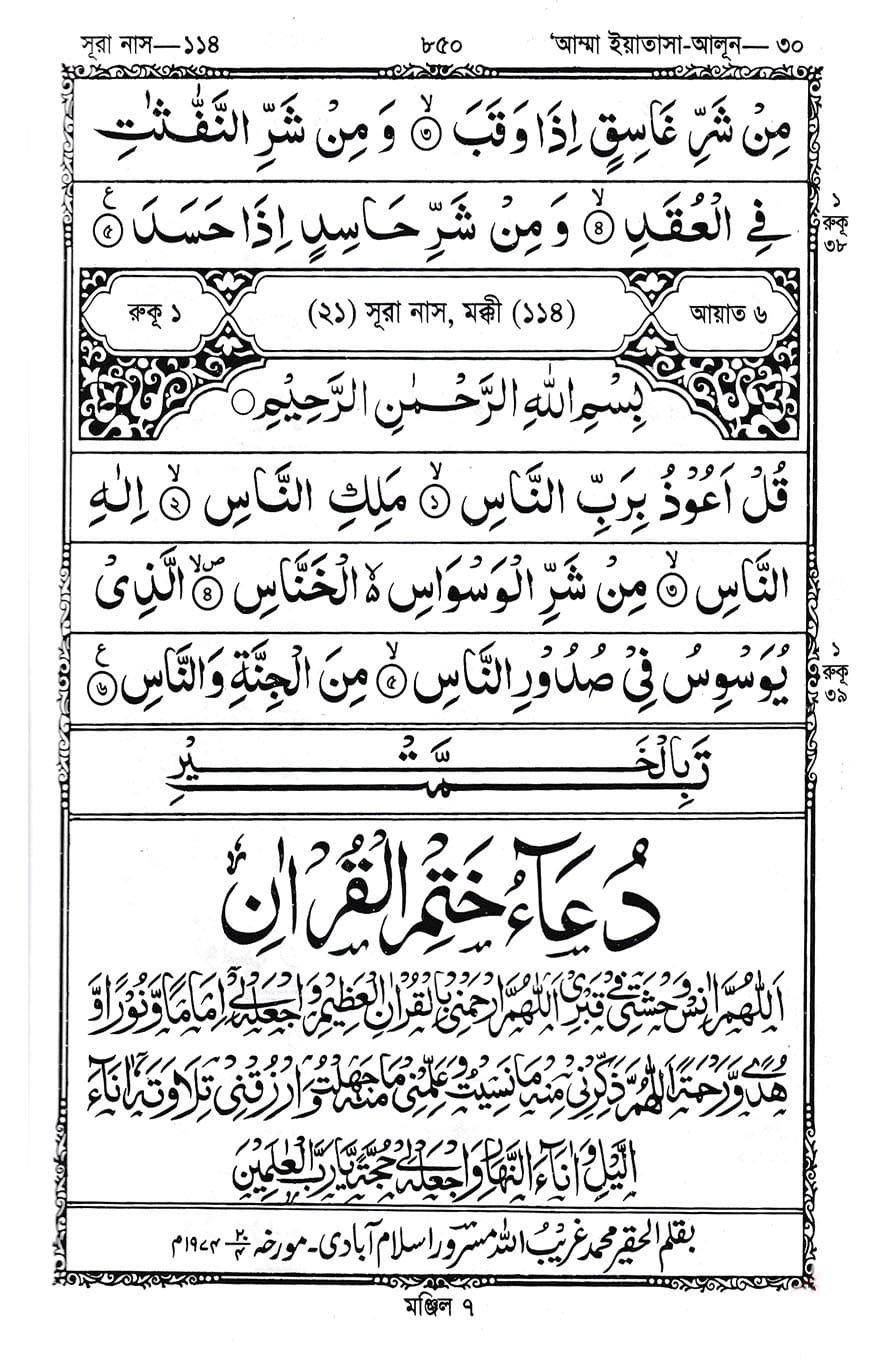 সূরা নাস—১১৪ ৮৫০ 'আম্মা ইয়াতাসা-আলূন— ৩০
مِنْ شَرِّ غَاسِقٍ اِذَا وَقَبَ ۙ﴿৩﴾ وَ مِنْ شَرِّ النَّفّٰثٰتِ
فِی الْعُقَدِ ۙ﴿৪﴾ وَ مِنْ شَرِّ حَاسِدٍ اِذَا حَسَدَ ﴿৫﴾ ع
১
রুকূ
৩৮
রুকূ ১ (২১) সূরা নাস, মক্কী (১১৪) আয়াত ৬
بِسْمِ اللّٰهِ الرَّحْمٰنِ الرَّحِیْمِ ○
قُلْ اَعُوْذُ بِرَبِّ النَّاسِ ۙ﴿১﴾ مَلِكِ النَّاسِ ۙ﴿২﴾ اِلٰهِ
النَّاسِ ۙ﴿৩﴾ مِنْ شَرِّ الْوَسْوَاسِ ۙ۬ الْخَنَّاسِ ﴿৪﴾ صلا الَّذِیْ
یُوَسْوِسُ فِیْ صُدُوْرِ النَّاسِ ۙ﴿৫﴾ مِنَ الْجِنَّةِ وَالنَّاسِ ﴿৬﴾ ع
১
রুকূ
৩৯
تَمَّتْ بِالْخَیْرِ
دُعَآءُ خَتْمِ الْقُرْاٰنِ
اَللّٰهُمَّ اٰنِسْ وَحْشَتِیْ فِیْ قَبْرِیْ اَللّٰهُمَّ ارْحَمْنِیْ بِالْقُرْاٰنِ الْعَظِیْمِ وَاجْعَلْهُ لِیْ اِمَامًا وَّنُوْرًا وَّ
هُدًی وَّرَحْمَةً اَللّٰهُمَّ ذَكِّرْنِیْ مِنْهُ مَا نَسِیْتُ وَعَلِّمْنِیْ مِنْهُ مَا جَهِلْتُ وَارْزُقْنِیْ تِلَاوَتَهٗ اٰنَآءَ
الَّیْلِ وَاٰنَآءَ النَّهَارِ وَاجْعَلْهُ لِیْ حُجَّةً یَّا رَبَّ الْعٰلَمِیْنَ
بقلم الحقیر محمد غریبُ اللہ مسرور اسلام آبادی۔ مورخہ ۲۰/۴ ۱۹۷۴م
মঞ্জিল ৭